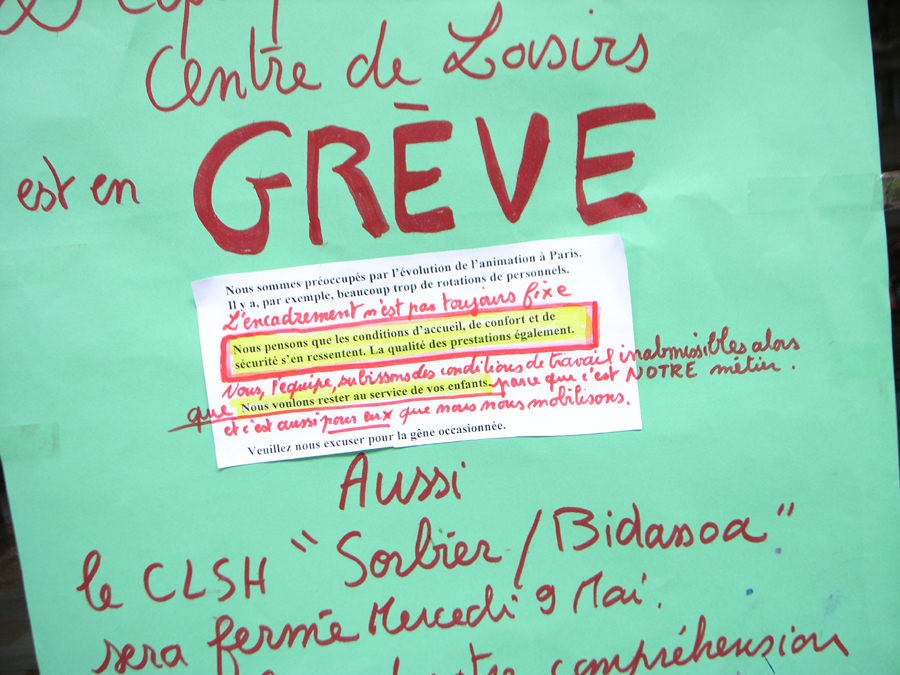 Centre de Loisirs
est en GRÈVE
Nous sommes préoccupés par l'évolution de l'animation à Paris.
Il y a, par exemple, beaucoup trop de rotations de personnels.
L'encadrement n'est pas toujours fixe
Nous pensons que les conditions d'accueil, de confort et de
sécurité s'en ressentent. La qualité des prestations également.
Nous, l'équipe, subissons des conditions de travail inadmissibles alors
que Nous voulons rester au service de vos enfants. parce que c'est NOTRE métier.
et c'est aussi pour eux que nous nous mobilisons.
Veuillez nous excuser pour la gêne occasionnée.
Aussi
le CLSH "Sorbier/Bidassoa"
sera fermé Mercredi 9 Mai.
compréhension